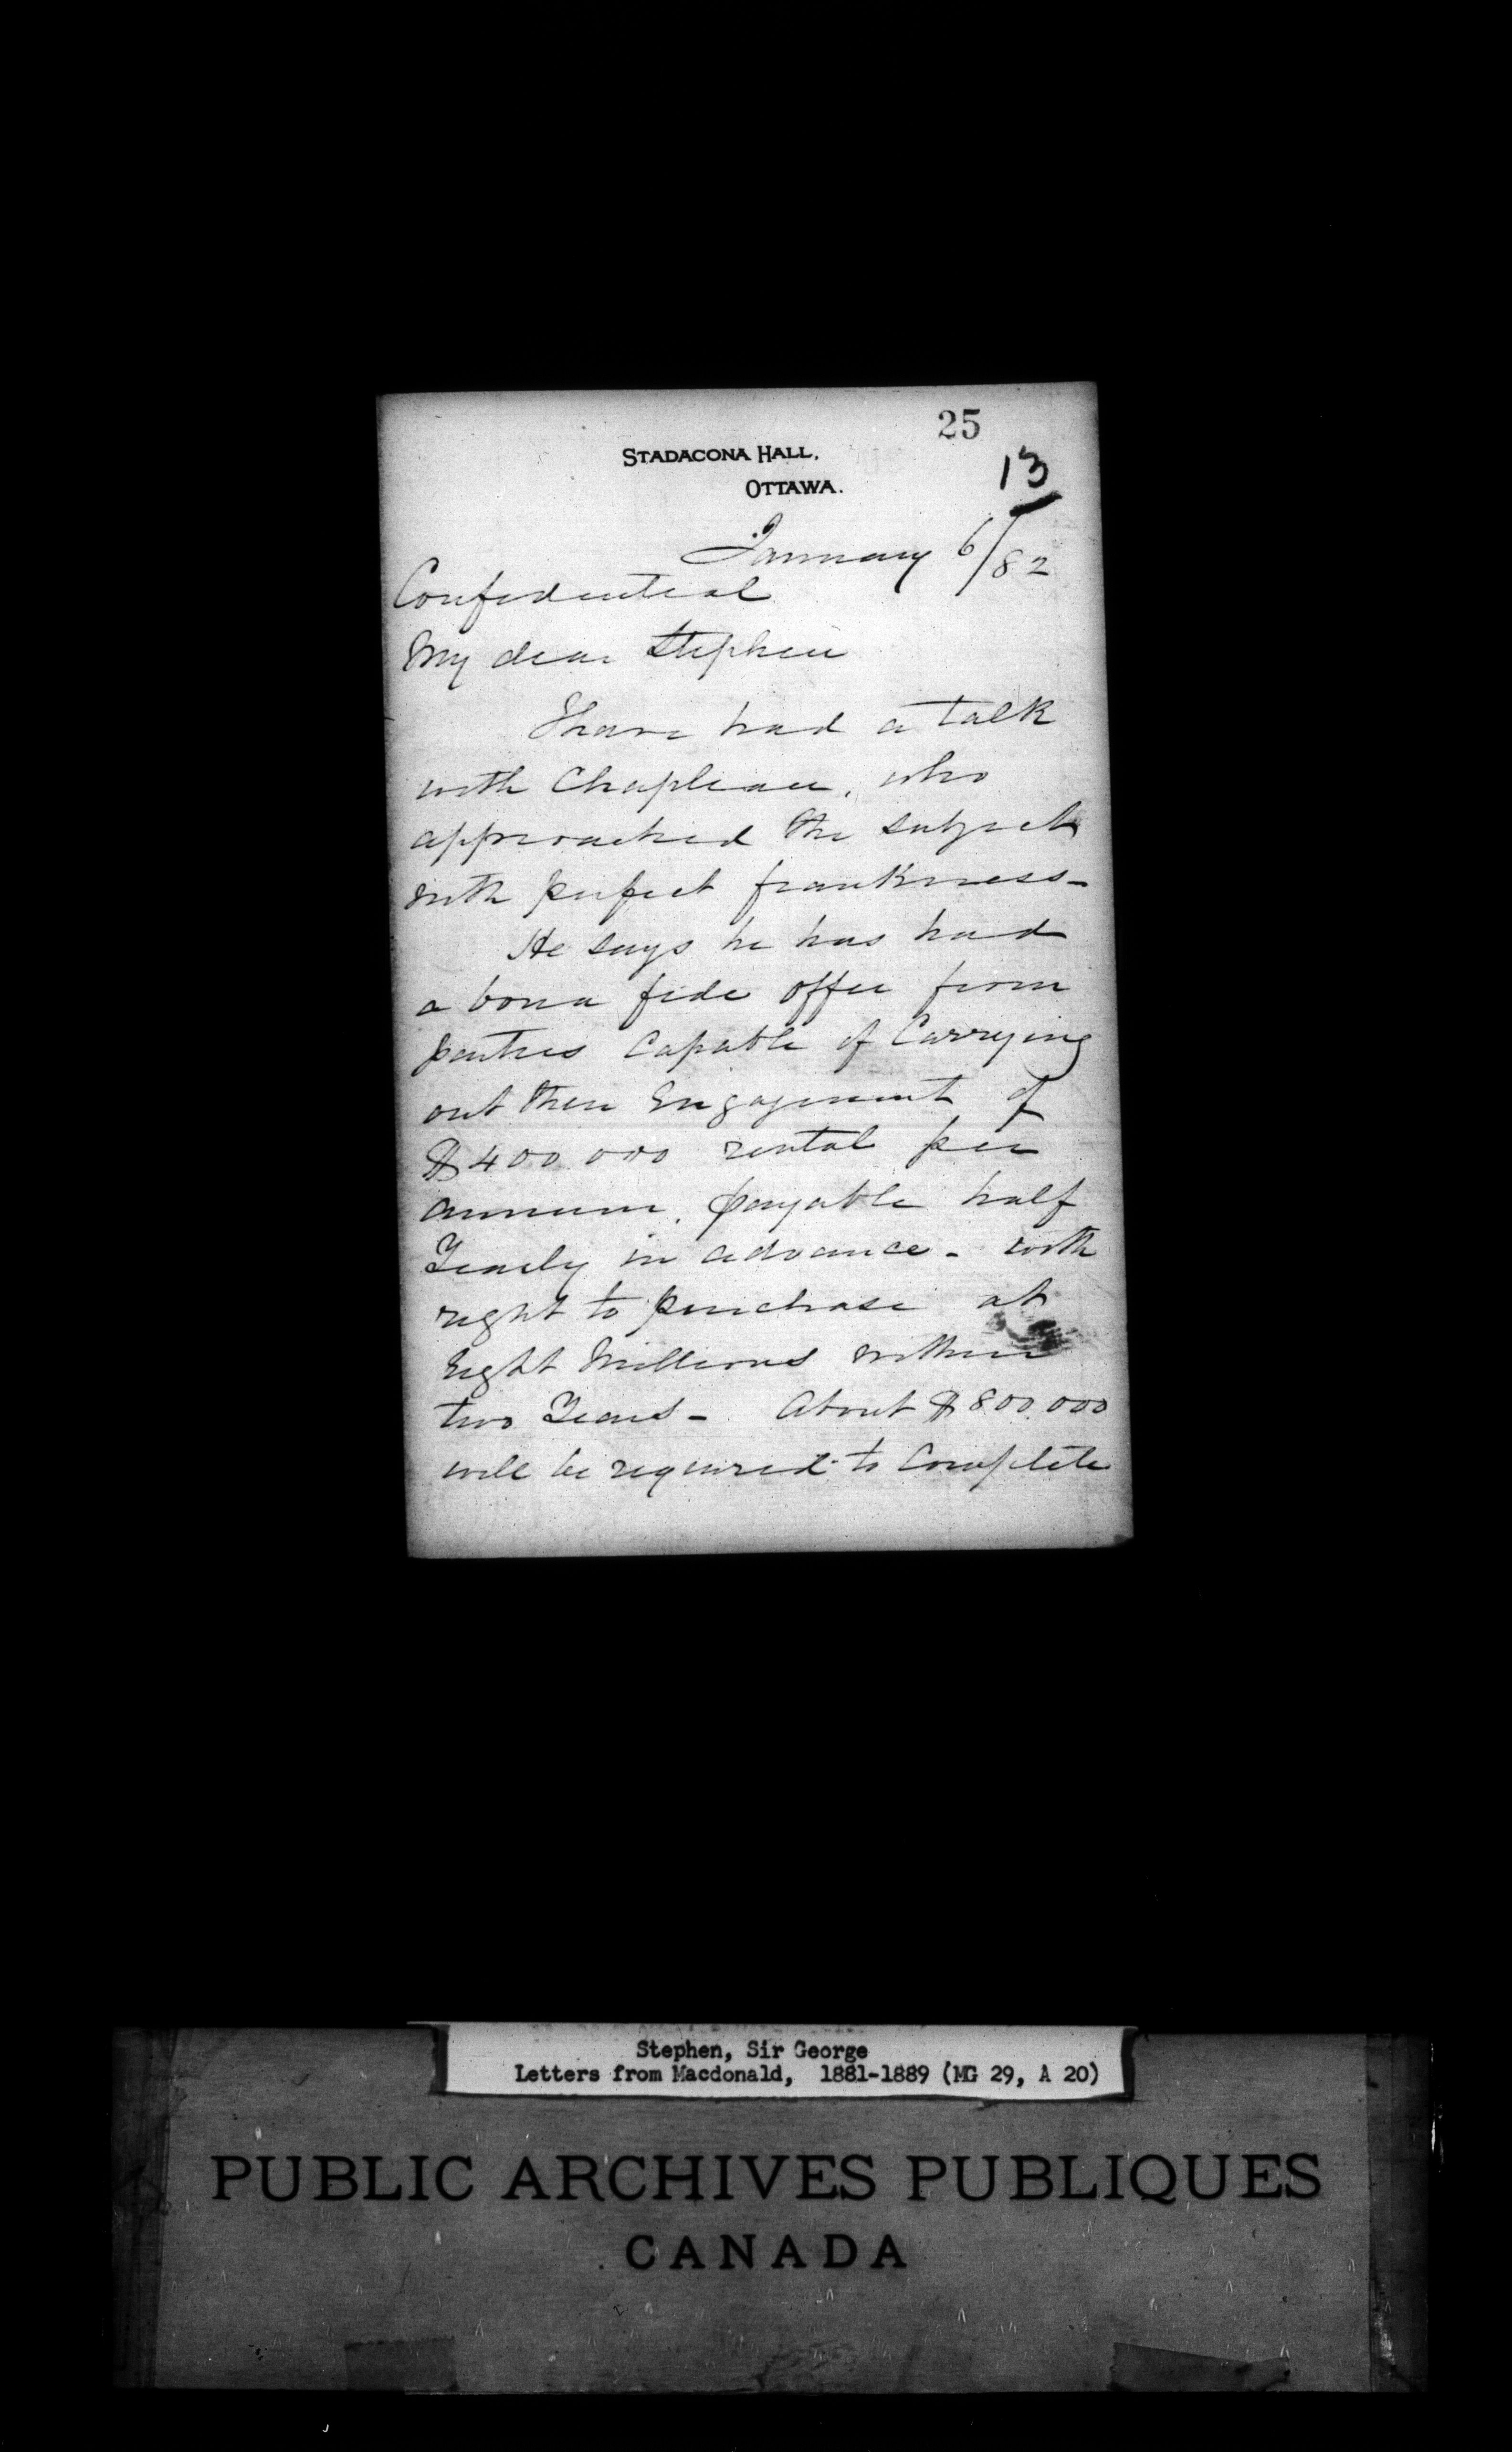 25
STADACONA HALL,
OTTAWA.
13
January 6/82
Confidential
My dear Stephen
I have had a talk
with Chapleau, who
approached the subject
with perfect frankness-
He says he has had
a bona fide offer from
parties capable of Carrying
out their Engagement of
$400.000 rental per
annum, payable half
Yearly in advance - with
right to purchase at
Eight Millions within
two Years - About $800.000
will be required to Complete
Stephen, Sir George
Letters from Macdonald, 1881-1889 (MG 29, A 20)
PUBLIC ARCHIVES PUBLIQUES
CANADA